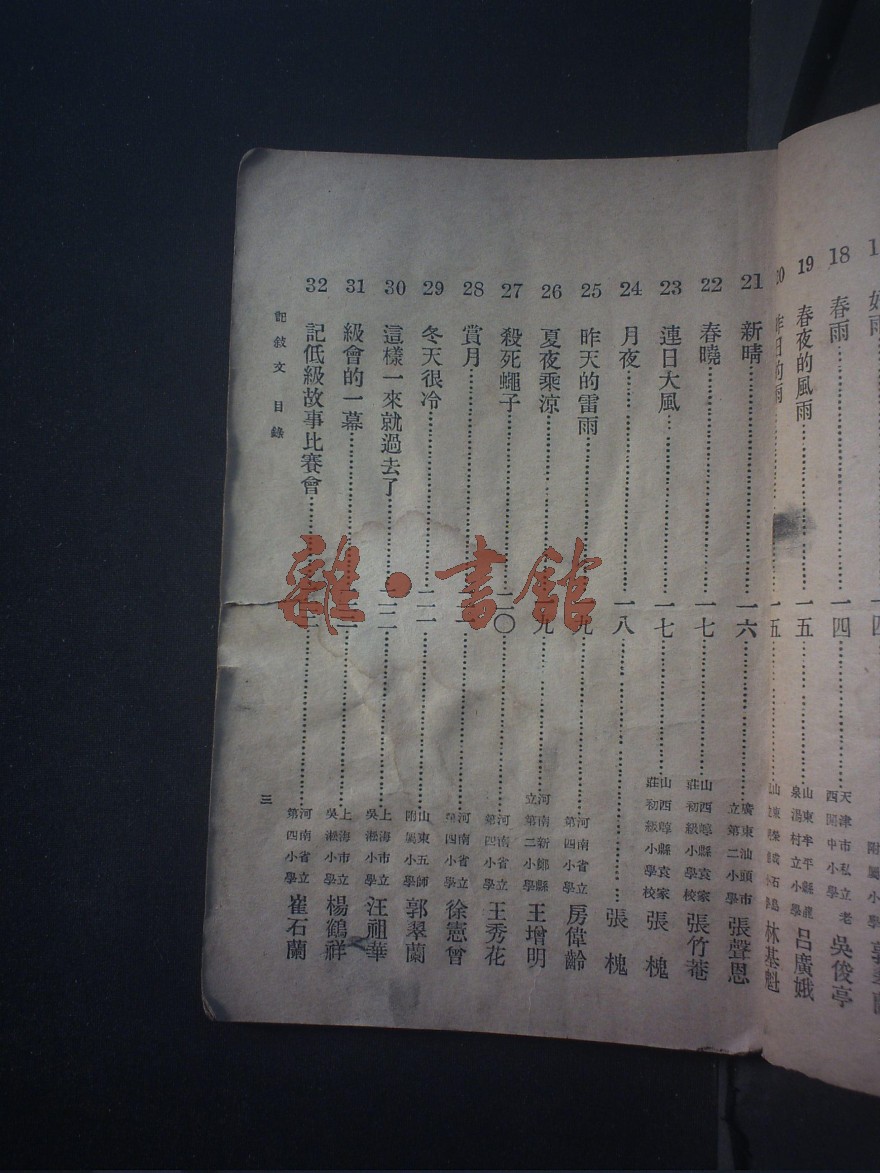 18 春雨 一四 天津市私立老西開中小學 吳俊亭
19 春夜的風雨 一五 山東牟平縣龍泉湯村立小學 呂廣娥
昨日的雨 五 林基魁
21 新晴 一六 廣東汕頭市立第二小學 張聲恩
22 春曉 一七 山西崞縣袁家莊初級小學校 張竹菴
23 連日大風 一七 山西崞縣袁家莊初級小學校 張槐
24 月夜 一八 張槐
25 昨天的雷雨 九 河南省立第四小學 房偉齡
26 夏夜乘涼 九 河南新鄭縣立第二小學 王增明
27 殺死蠅子 二〇 河南省立第四小學 王秀花
28 賞月 河南省立第四小學 徐憲曾
29 冬天很冷 二一 山東五師附屬小學 郭翠蘭
30 這樣一來就過去了 上海市立吳淞小學 汪祖華
31 級會的一幕 上海市立吳淞小學 楊鶴祥
32 記低級故事比賽會 河南省立第四小學 崔石蘭
記敍文 目錄
三
雜·書館